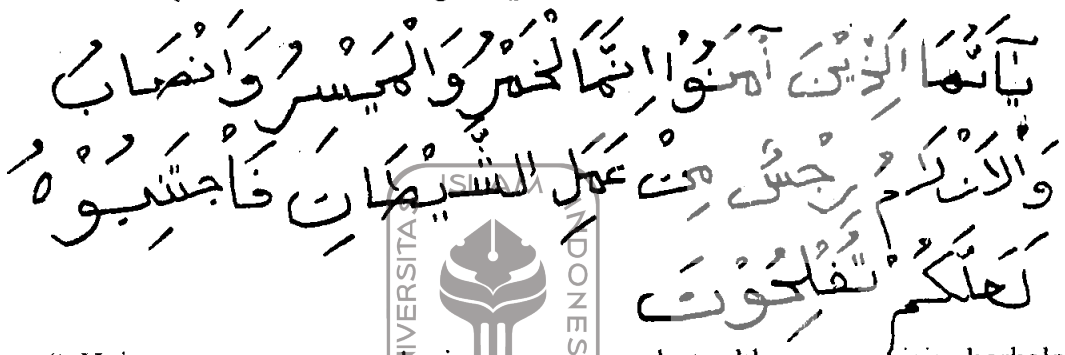 يَآاَيُّهَا الَّذِيْنَ آمَنُوْا اِنَّمَا لْخَمْرُ وَالْمَيْسِرُ وَانْصَابُ
وَالْاَزْلَامُ رِجْسٌ مِنْ عَمَلِ الشَّيْطَانِ فَاجْتَنِبُوْهُ
لَعَلَّكُمْ تُفْلِحُوْنَ
ISLAM
UNIVERSITAS
INDONES